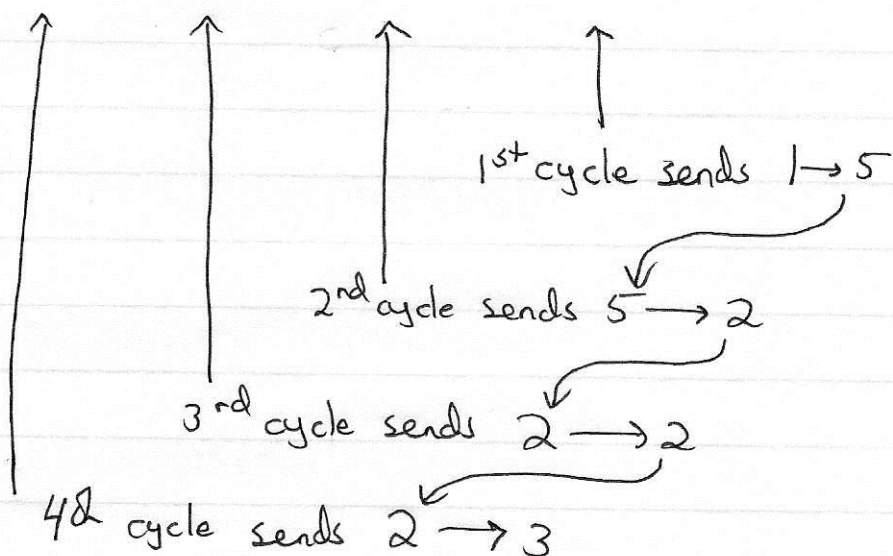 1st cycle sends 1 → 5
2nd cycle sends 5 → 2
3rd cycle sends 2 → 2
4th cycle sends 2 → 3